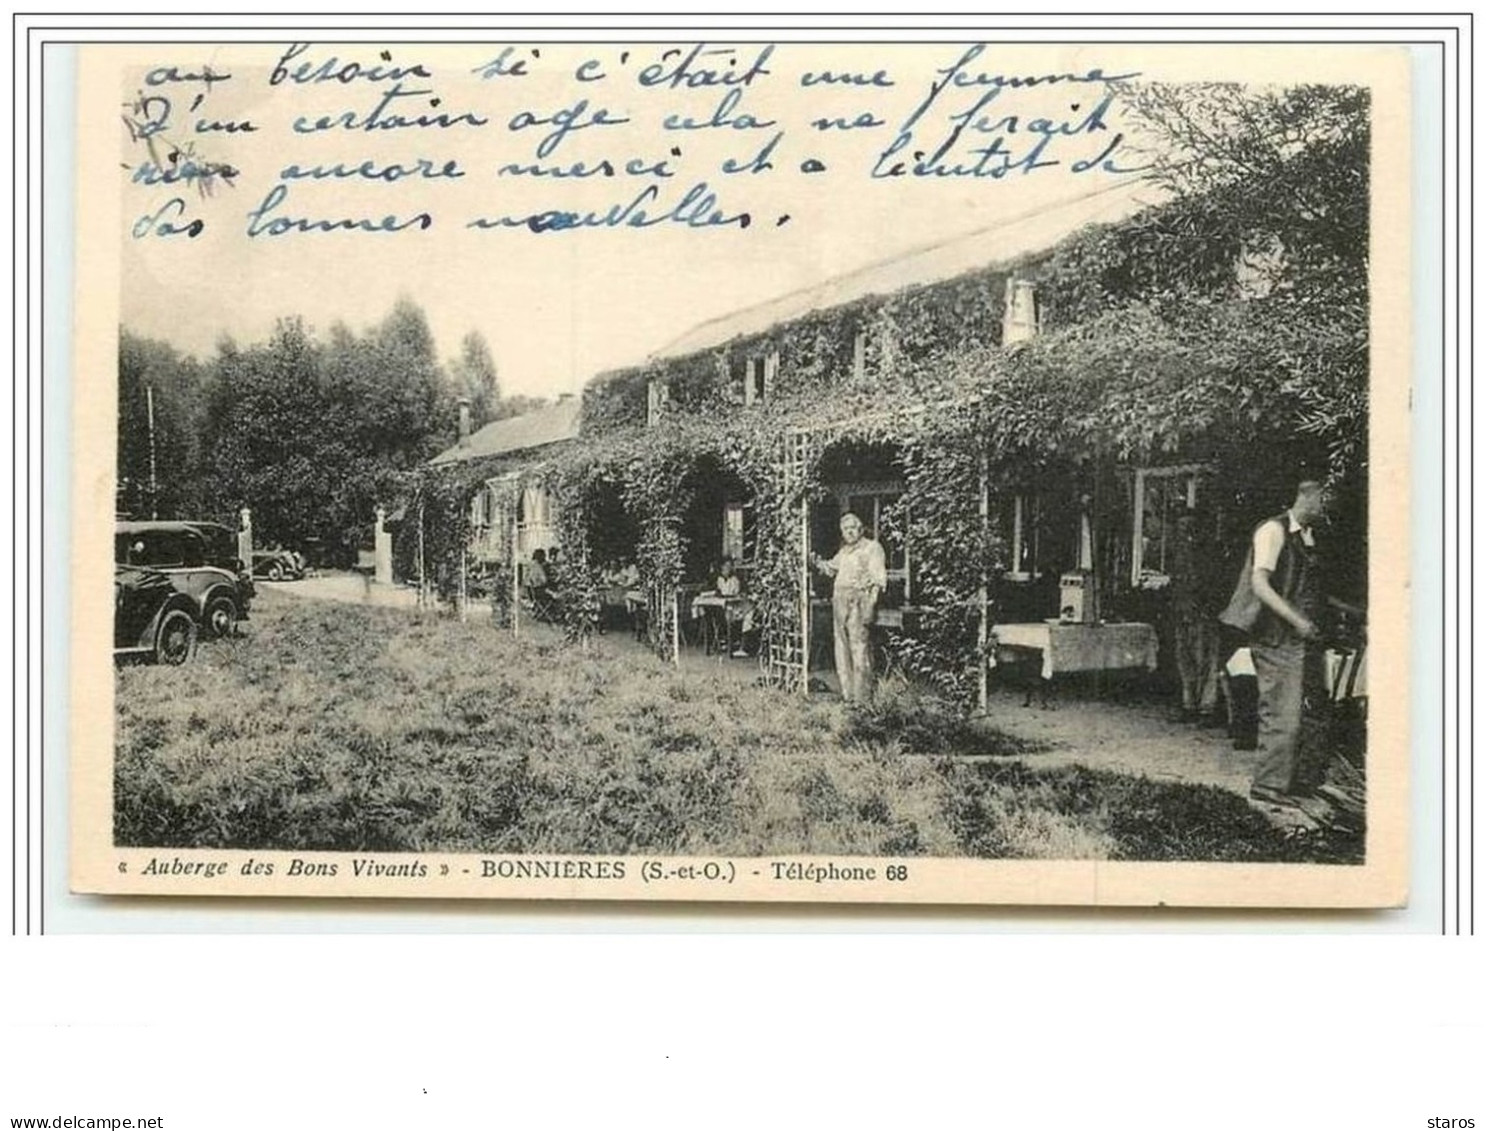 au besoin si c'était une femme
d'un certain age cela ne ferait
rien ancore merci et a bientot de
vos bonnes nouvelles.
« Auberge des Bons Vivants » - BONNIÈRES (S.-et-O.) - Téléphone 68
www.delcampe.net
staros